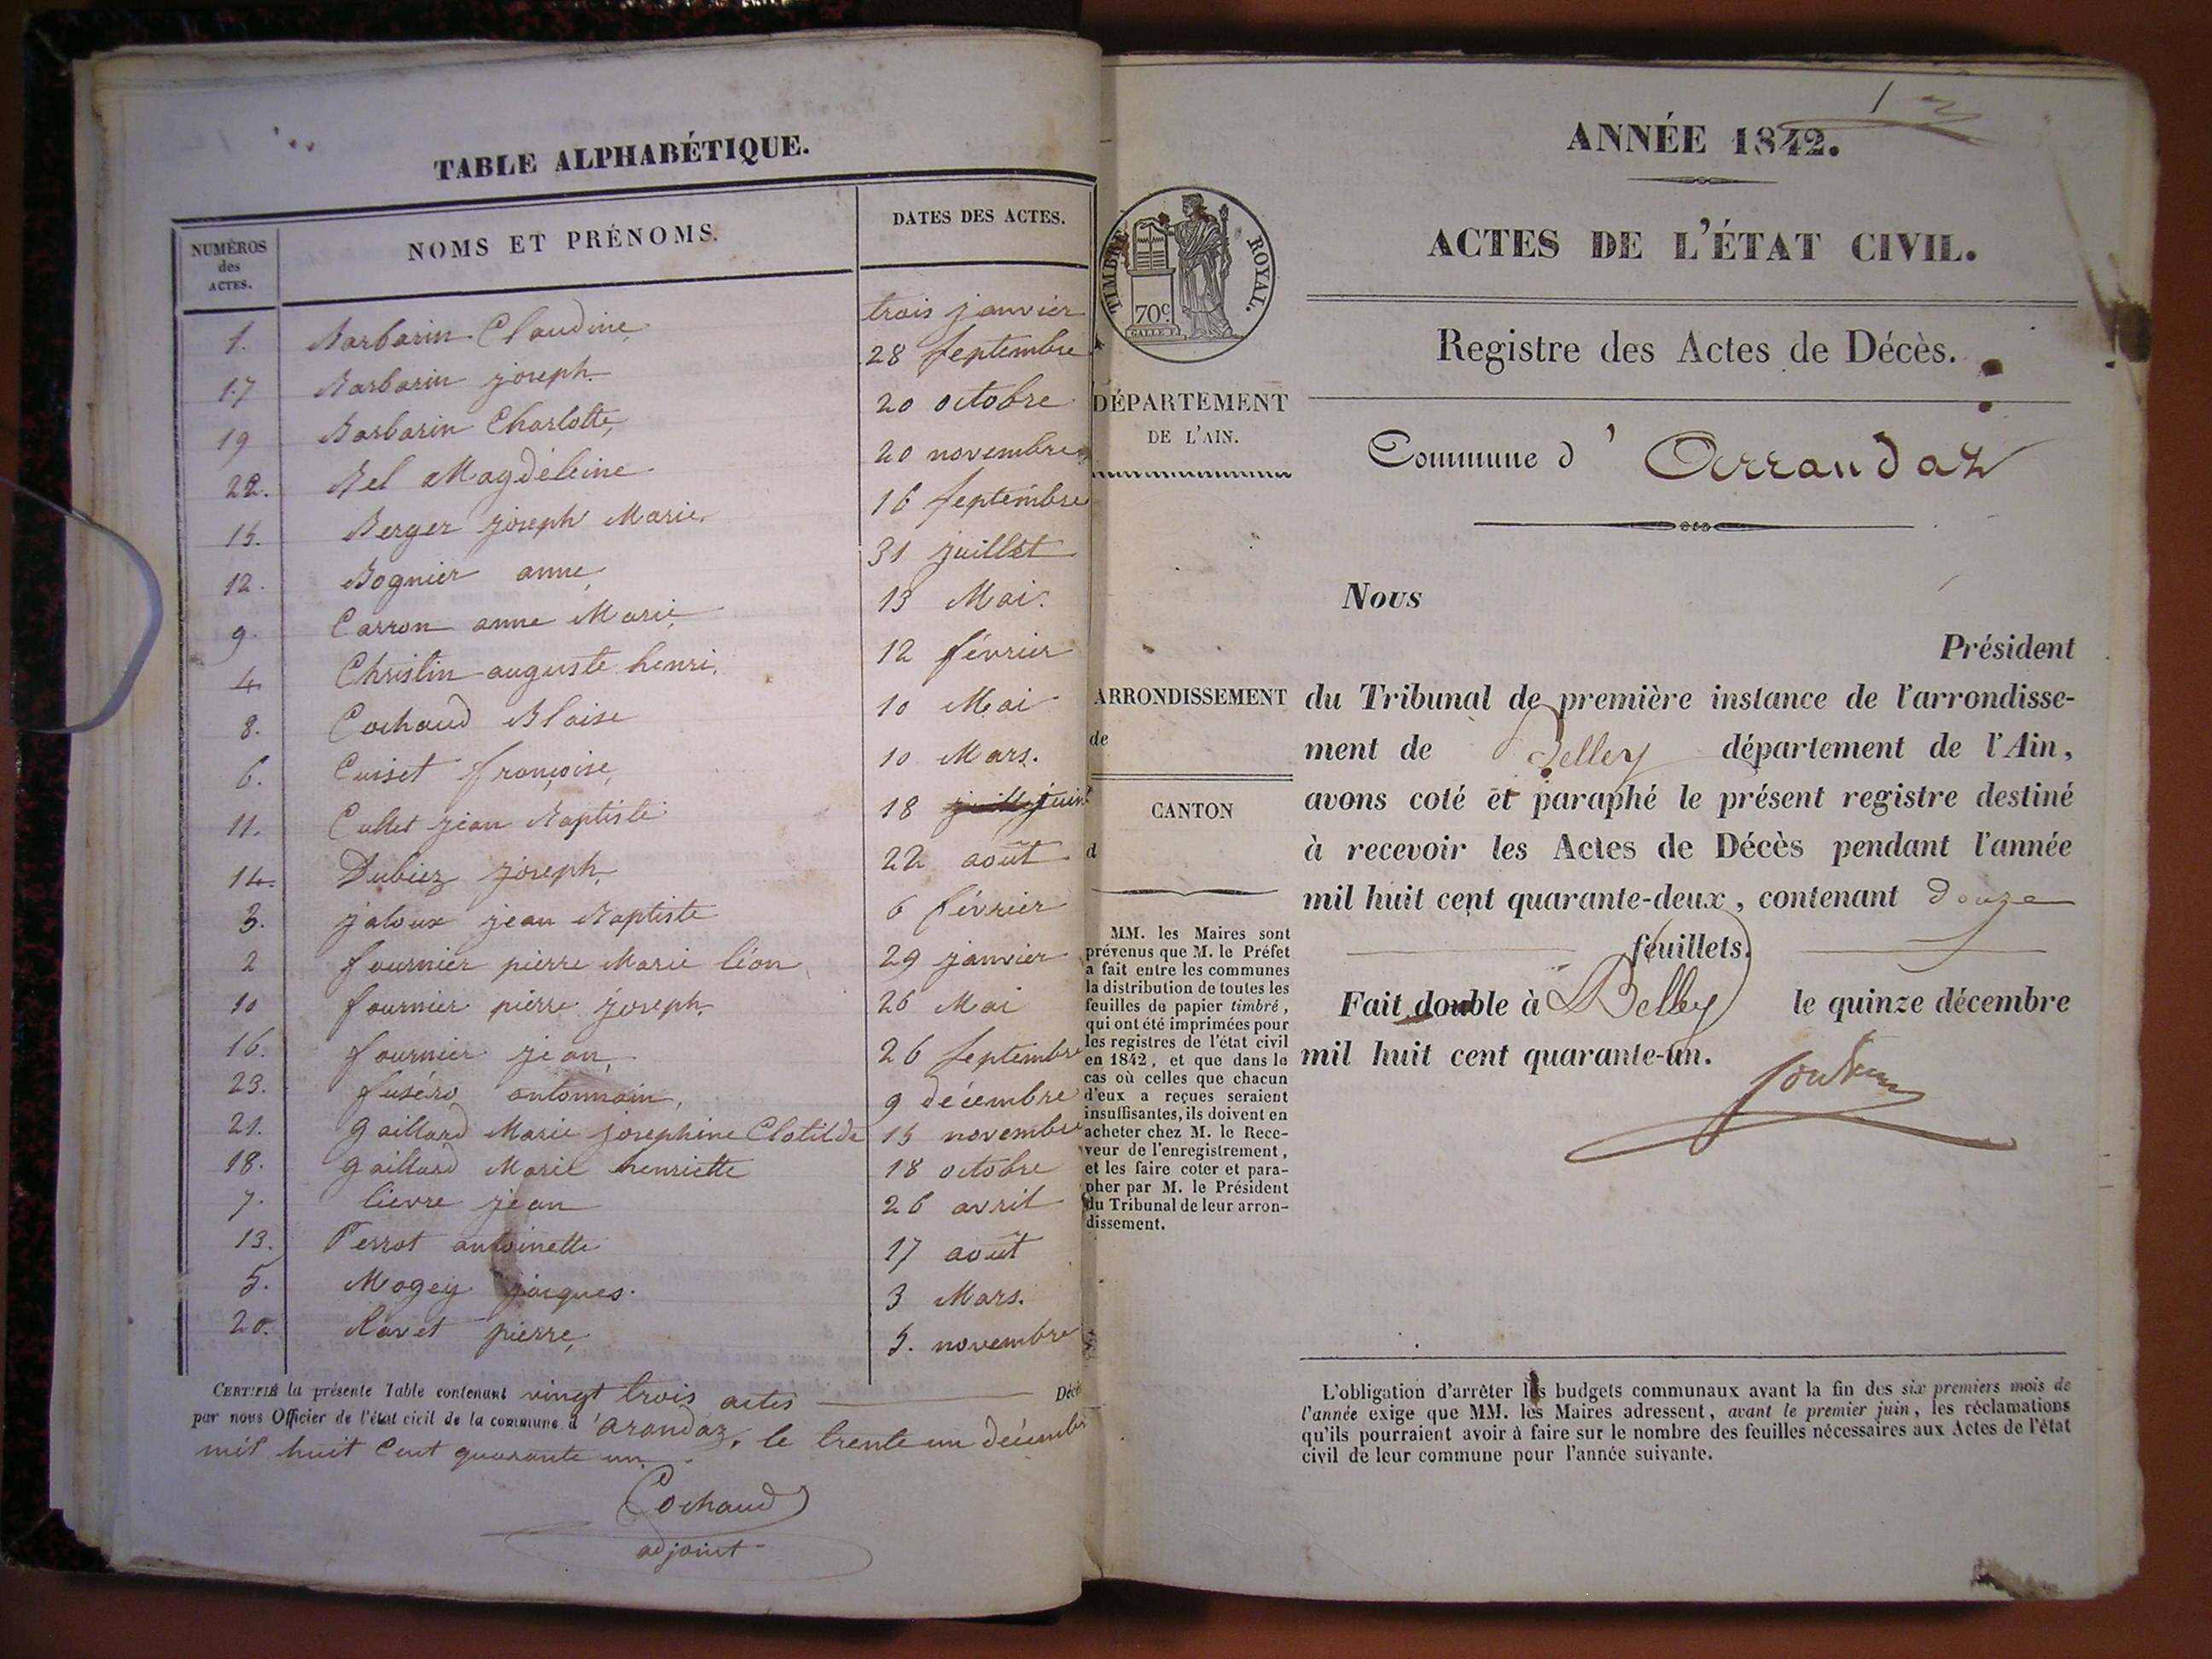 TABLE ALPHABÉTIQUE.
NUMÉROS des ACTES. NOMS ET PRÉNOMS. DATES DES ACTES.
1. Barbarin Claudine trois janvier
17 Barbarin joseph 28 septembre
19 Barbarin Charlotte 20 octobre
22. Bel Magdeleine 20 novembre
15. Berger joseph Marie 16 septembre
12. Bognier anne 31 juillet
9. Carron anne Marie 13 Mai.
4 Christin auguste henri. 12 février
8. Cochaud Blaise 10 Mai
6. Cuiset françoise 10 Mars.
11. Cullet jean Baptiste 18 juin
14. Dubiez joseph 22 août
3. jaloux jean Baptiste 6 février
2 fournier pierre Marie léon 29 janvier
10 fournier pierre joseph 26 Mai
16. fournier jean 26 septembre
23. fuséro antonnain, 9 décembre
21. gaillard Marie josephine Clotilde 15 novembre
18. gaillard Marie henriette 18 octobre
7. lievre jean 26 avril
13. Perrot antoinette 17 août
5. Mogey jacques. 3 Mars.
20. Ravet pierre 5. novembre
CERTIFIÉ la présente Table contenant vingt trois actes Décès
par nous Officier de l'état civil de la commune d'arandaz, le trente un décembre
mil huit Cent quarante un.
Cochaud
adjoint
1
ANNÉE 1842.
ACTES DE L'ÉTAT CIVIL.
Registre des Actes de Décès.
Commune d'Arrandaz
TIMBRE ROYAL.
70c
GALLE F.
DÉPARTEMENT
DE L'AIN.
ARRONDISSEMENT
de
CANTON
d
MM. les Maires sont
prévenus que M. le Préfet
a fait entre les communes
la distribution de toutes les
feuilles de papier timbré,
qui ont été imprimées pour
les registres de l'état civil
en 1842, et que dans le
cas où celles que chacun
d'eux a reçues seraient
insuffisantes, ils doivent en
acheter chez M. le Rece-
veur de l'enregistrement,
et les faire coter et para-
pher par M. le Président
du Tribunal de leur arron-
dissement.
Nous
Président
du Tribunal de première instance de l'arrondisse-
ment de Belley département de l'Ain,
avons coté et paraphé le présent registre destiné
à recevoir les Actes de Décès pendant l'année
mil huit cent quarante-deux, contenant douze
feuillets.
Fait double à Belley le quinze décembre
mil huit cent quarante-un.
L'obligation d'arrêter les budgets communaux avant la fin des six premiers mois de
l'année exige que MM. les Maires adressent, avant le premier juin, les réclamations
qu'ils pourraient avoir à faire sur le nombre des feuilles nécessaires aux Actes de l'état
civil de leur commune pour l'année suivante.